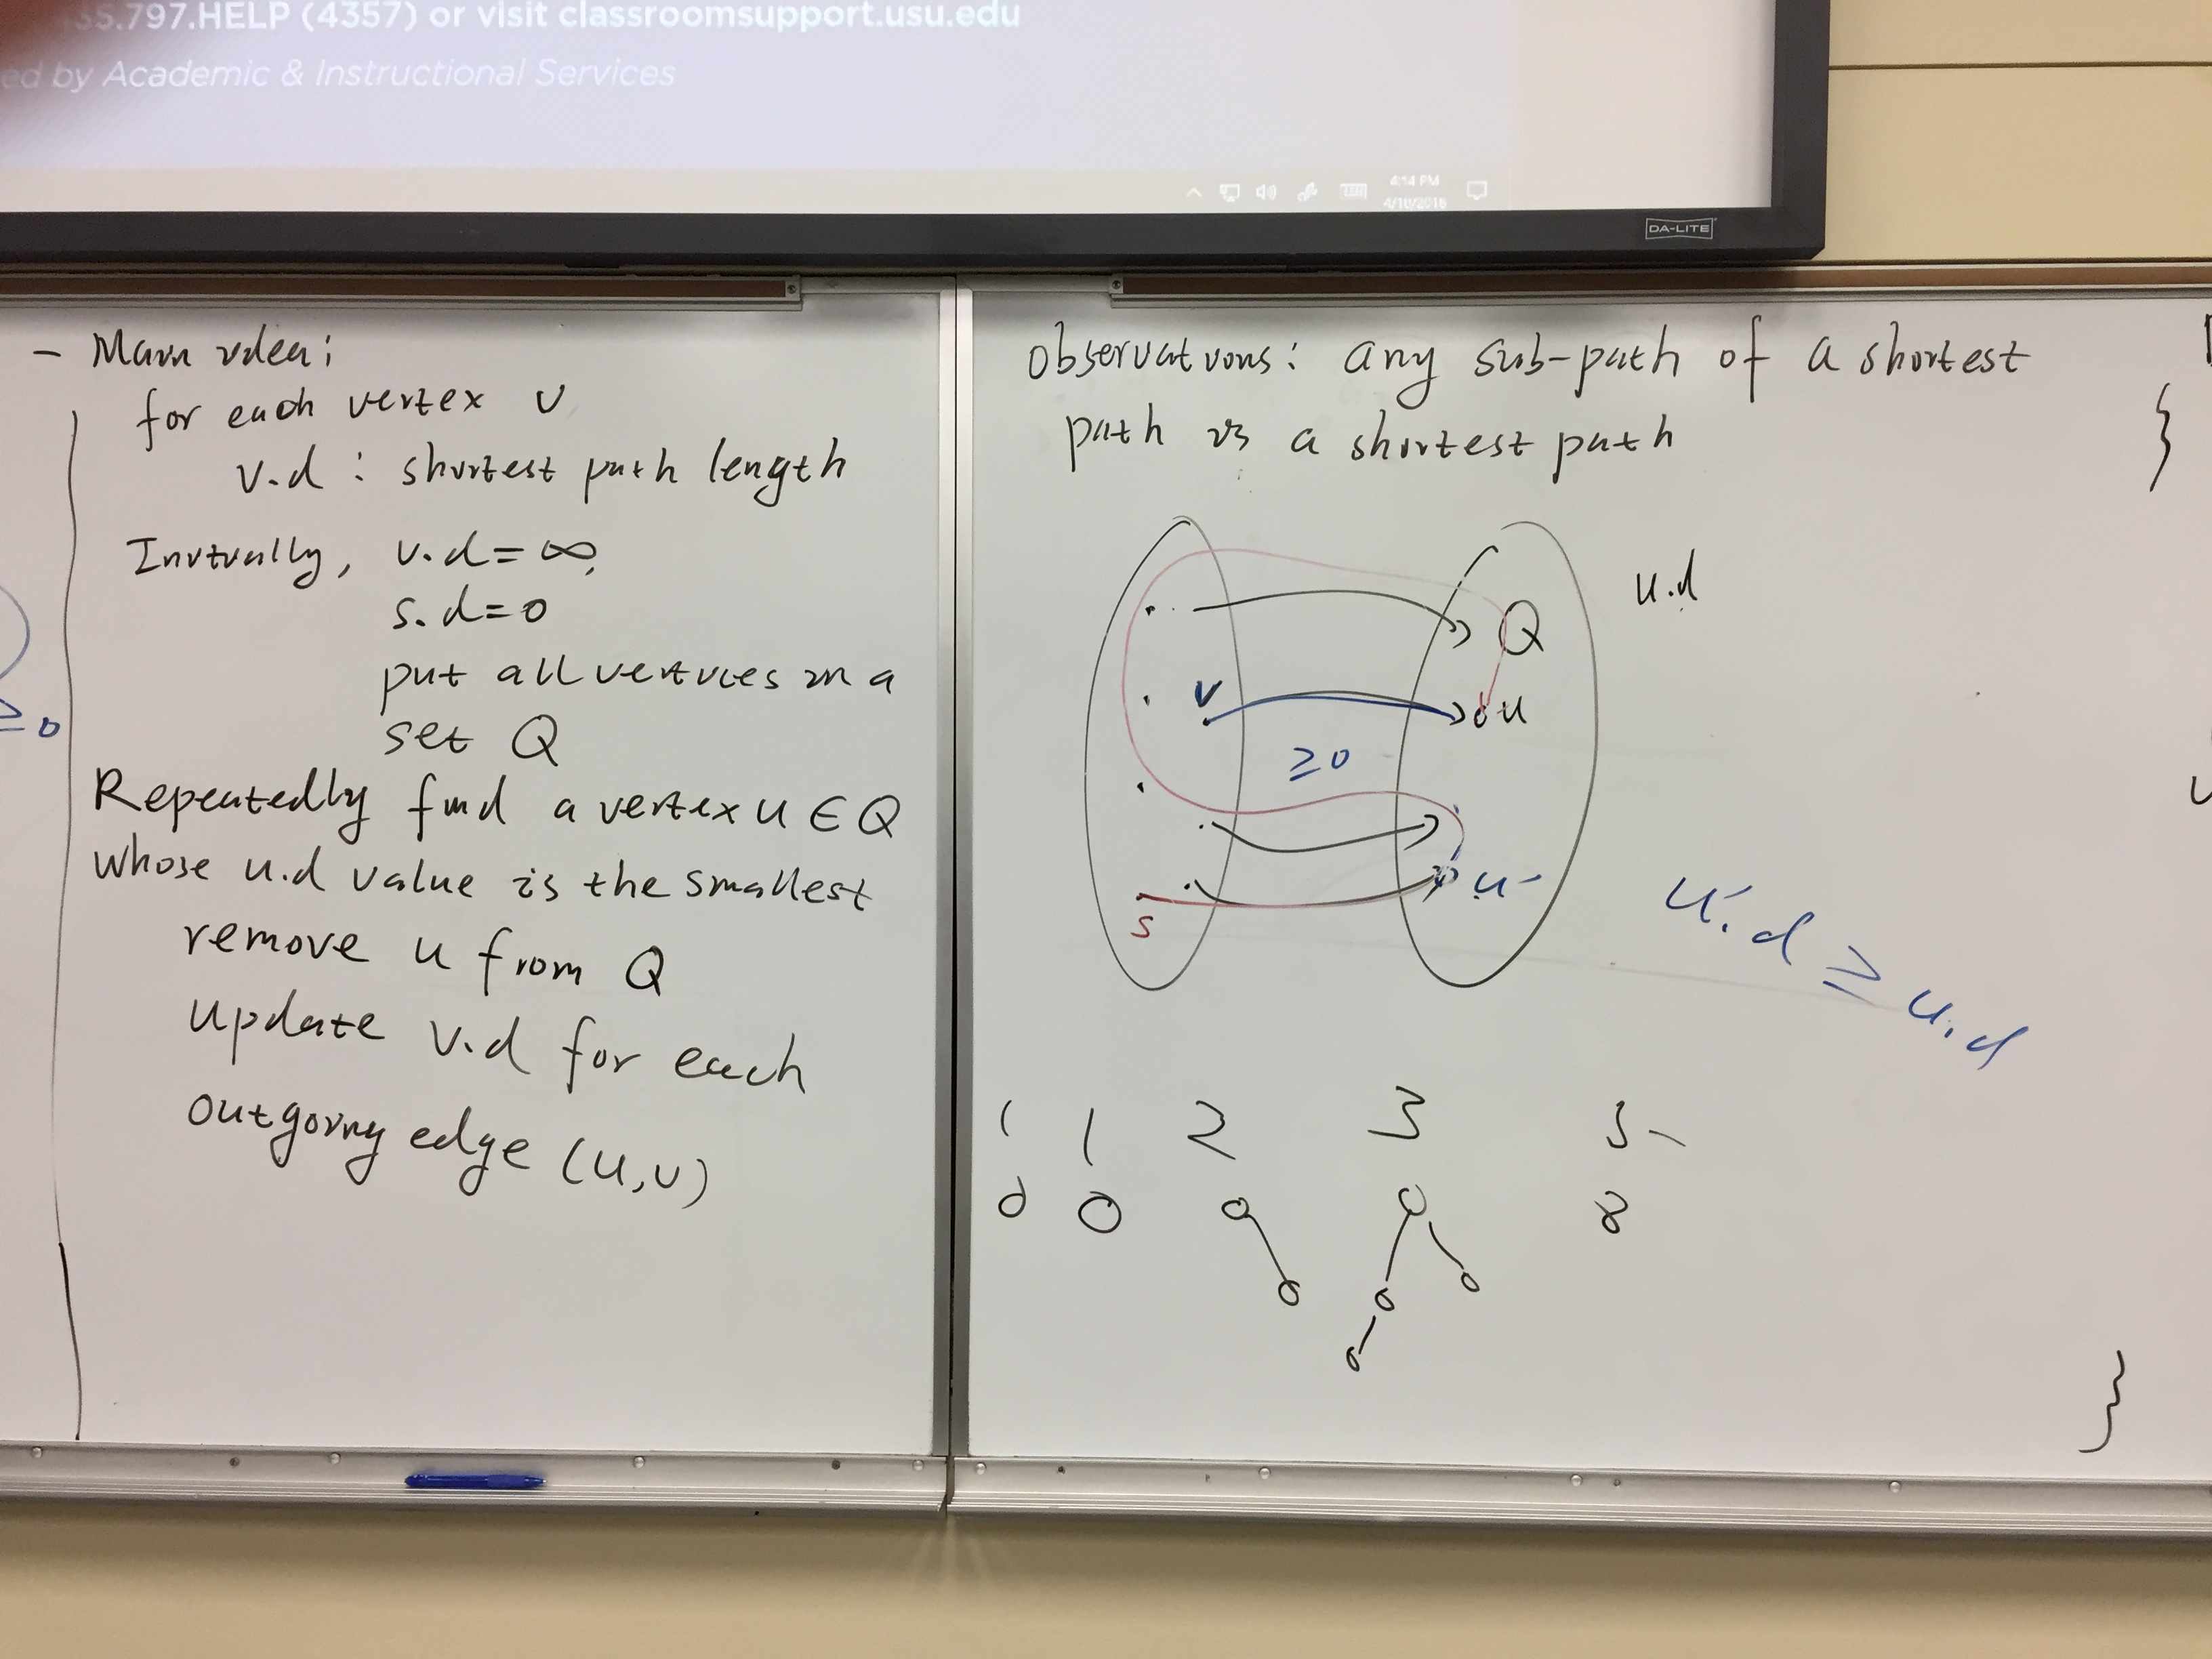 35.797.HELP (4357) or visit classroomsupport.usu.edu
ed by Academic & Instructional Services
4:14 PM
DA-LITE
- Main idea:
for each vertex v
v.d : shortest path length
Initially, v.d = ∞,
s.d = 0
put all vertices in a
set Q
Repeatedly find a vertex u ∈ Q
whose u.d value is the smallest
remove u from Q
update v.d for each
outgoing edge (u,v)
≥ 0
Observations: any sub-path of a shortest
path is a shortest path
}
u.d
Q
v
u
≥0
u'
s
u'.d ≥ u.d
1 2 3 5
0 8
}